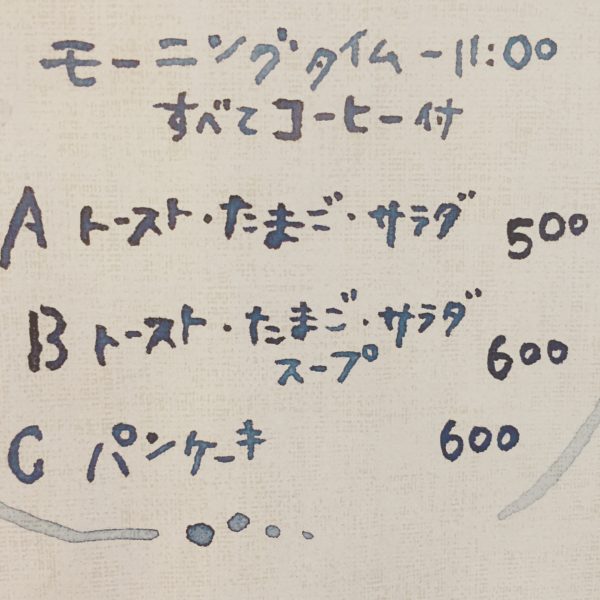 モーニングタイム -11:00
すべてコーヒー付
A トースト・たまご・サラダ 500
B トースト・たまご・サラダ
スープ 600
C パンケーキ 600